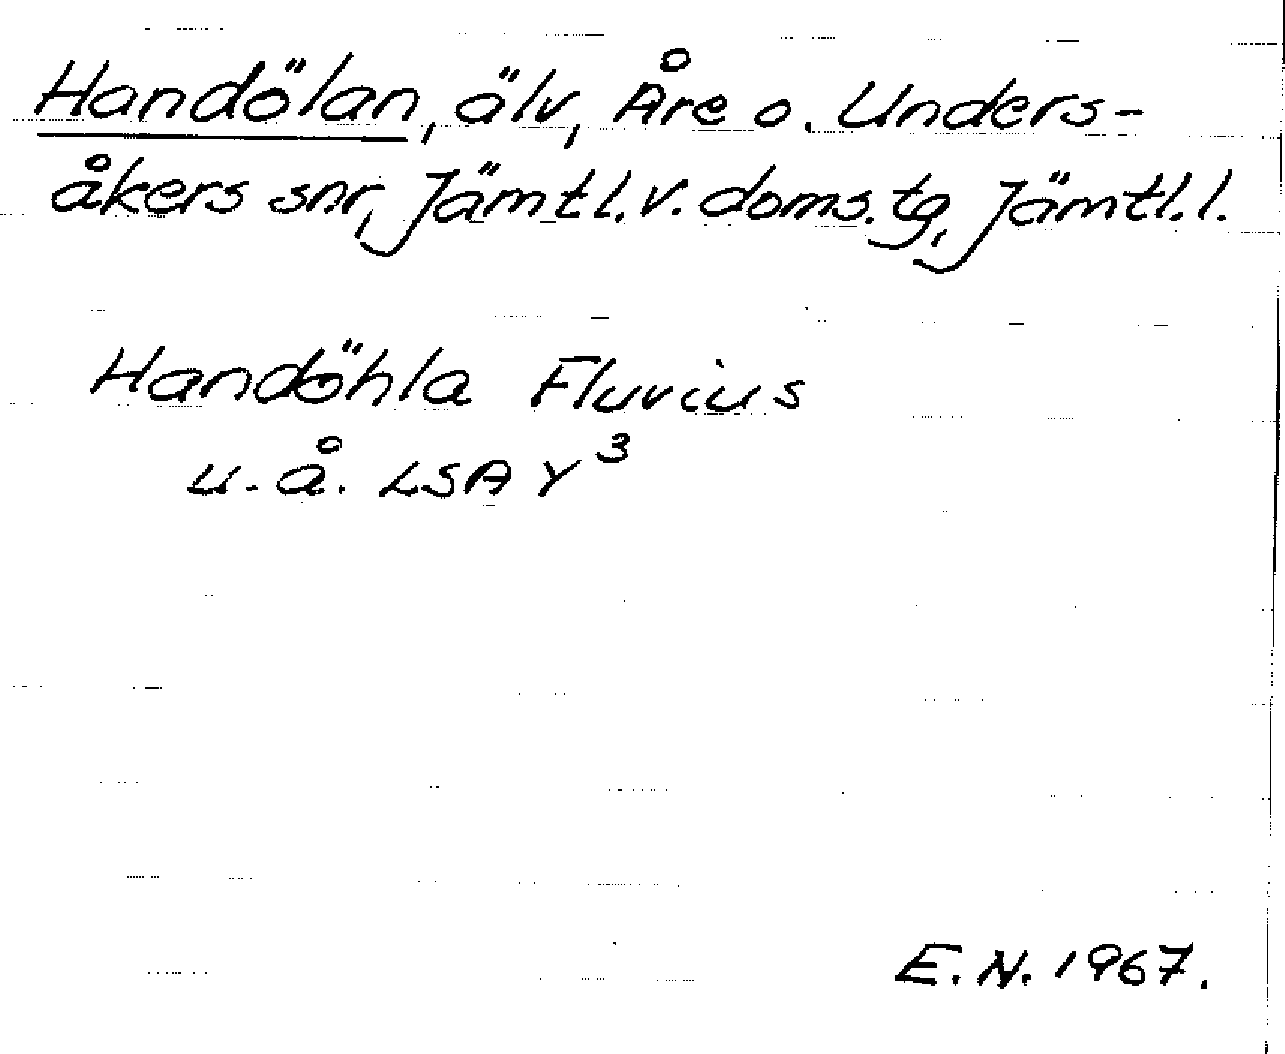 Handölan, älv, Åre o. Unders-
åkers snr, Jämtl. v. doms. tg, Jämtl. l.
Handöhla Fluvius
u. å. LSA Y³
E. N. 1967.